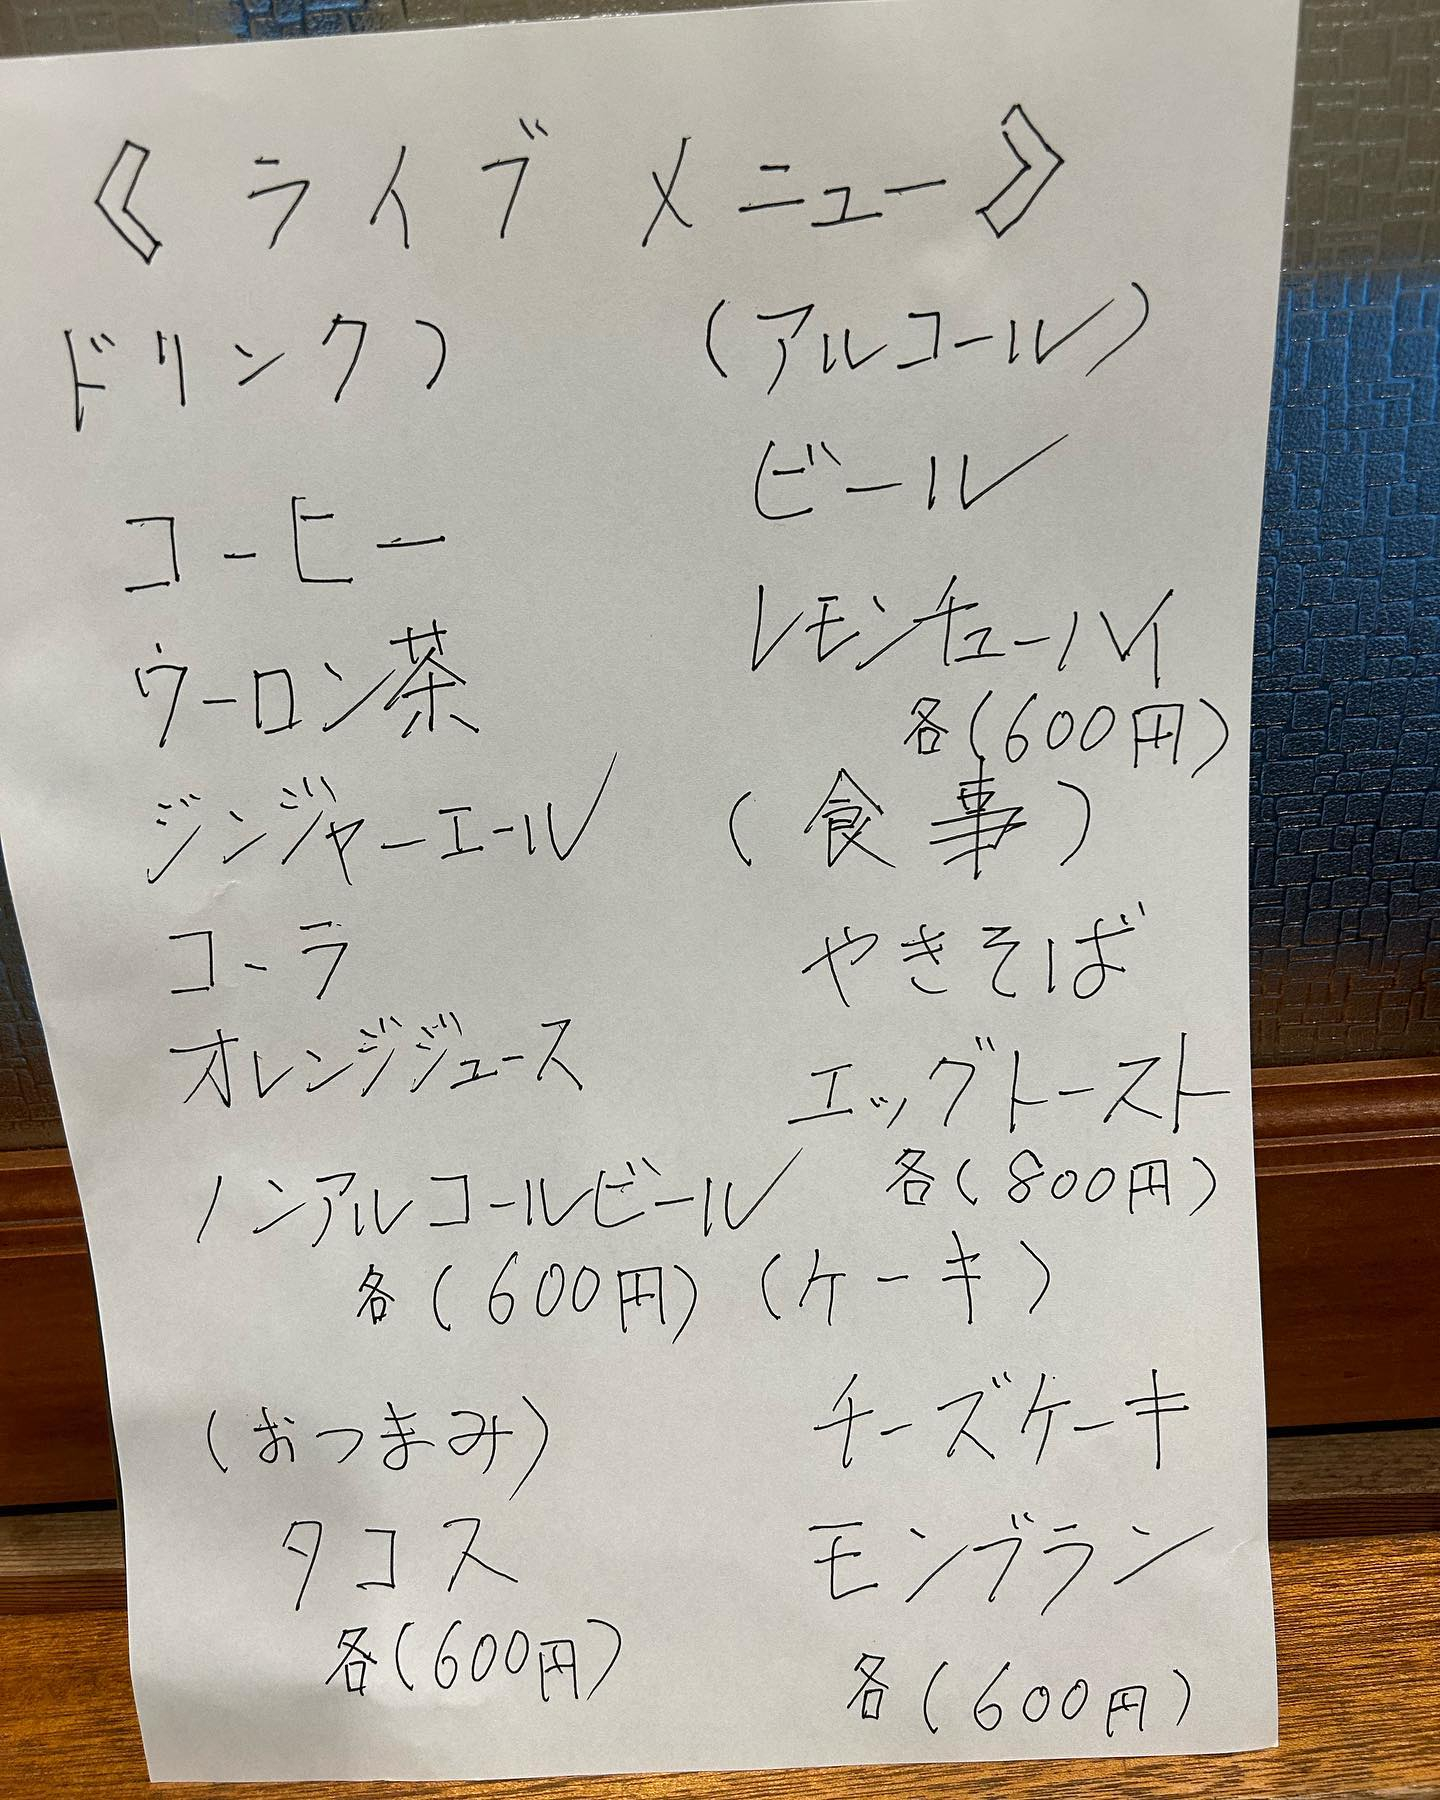 《ライブメニュー》
ドリンク)
コーヒー
ウーロン茶
ジンジャーエール
コーラ
オレンジジュース
ノンアルコールビール
各(600円)
(おつまみ)
タコス
各(600円)
(アルコール)
ビール
レモンチューハイ
各(600円)
(食事)
やきそば
エッグトースト
各(800円)
(ケーキ)
チーズケーキ
モンブラン
各(600円)